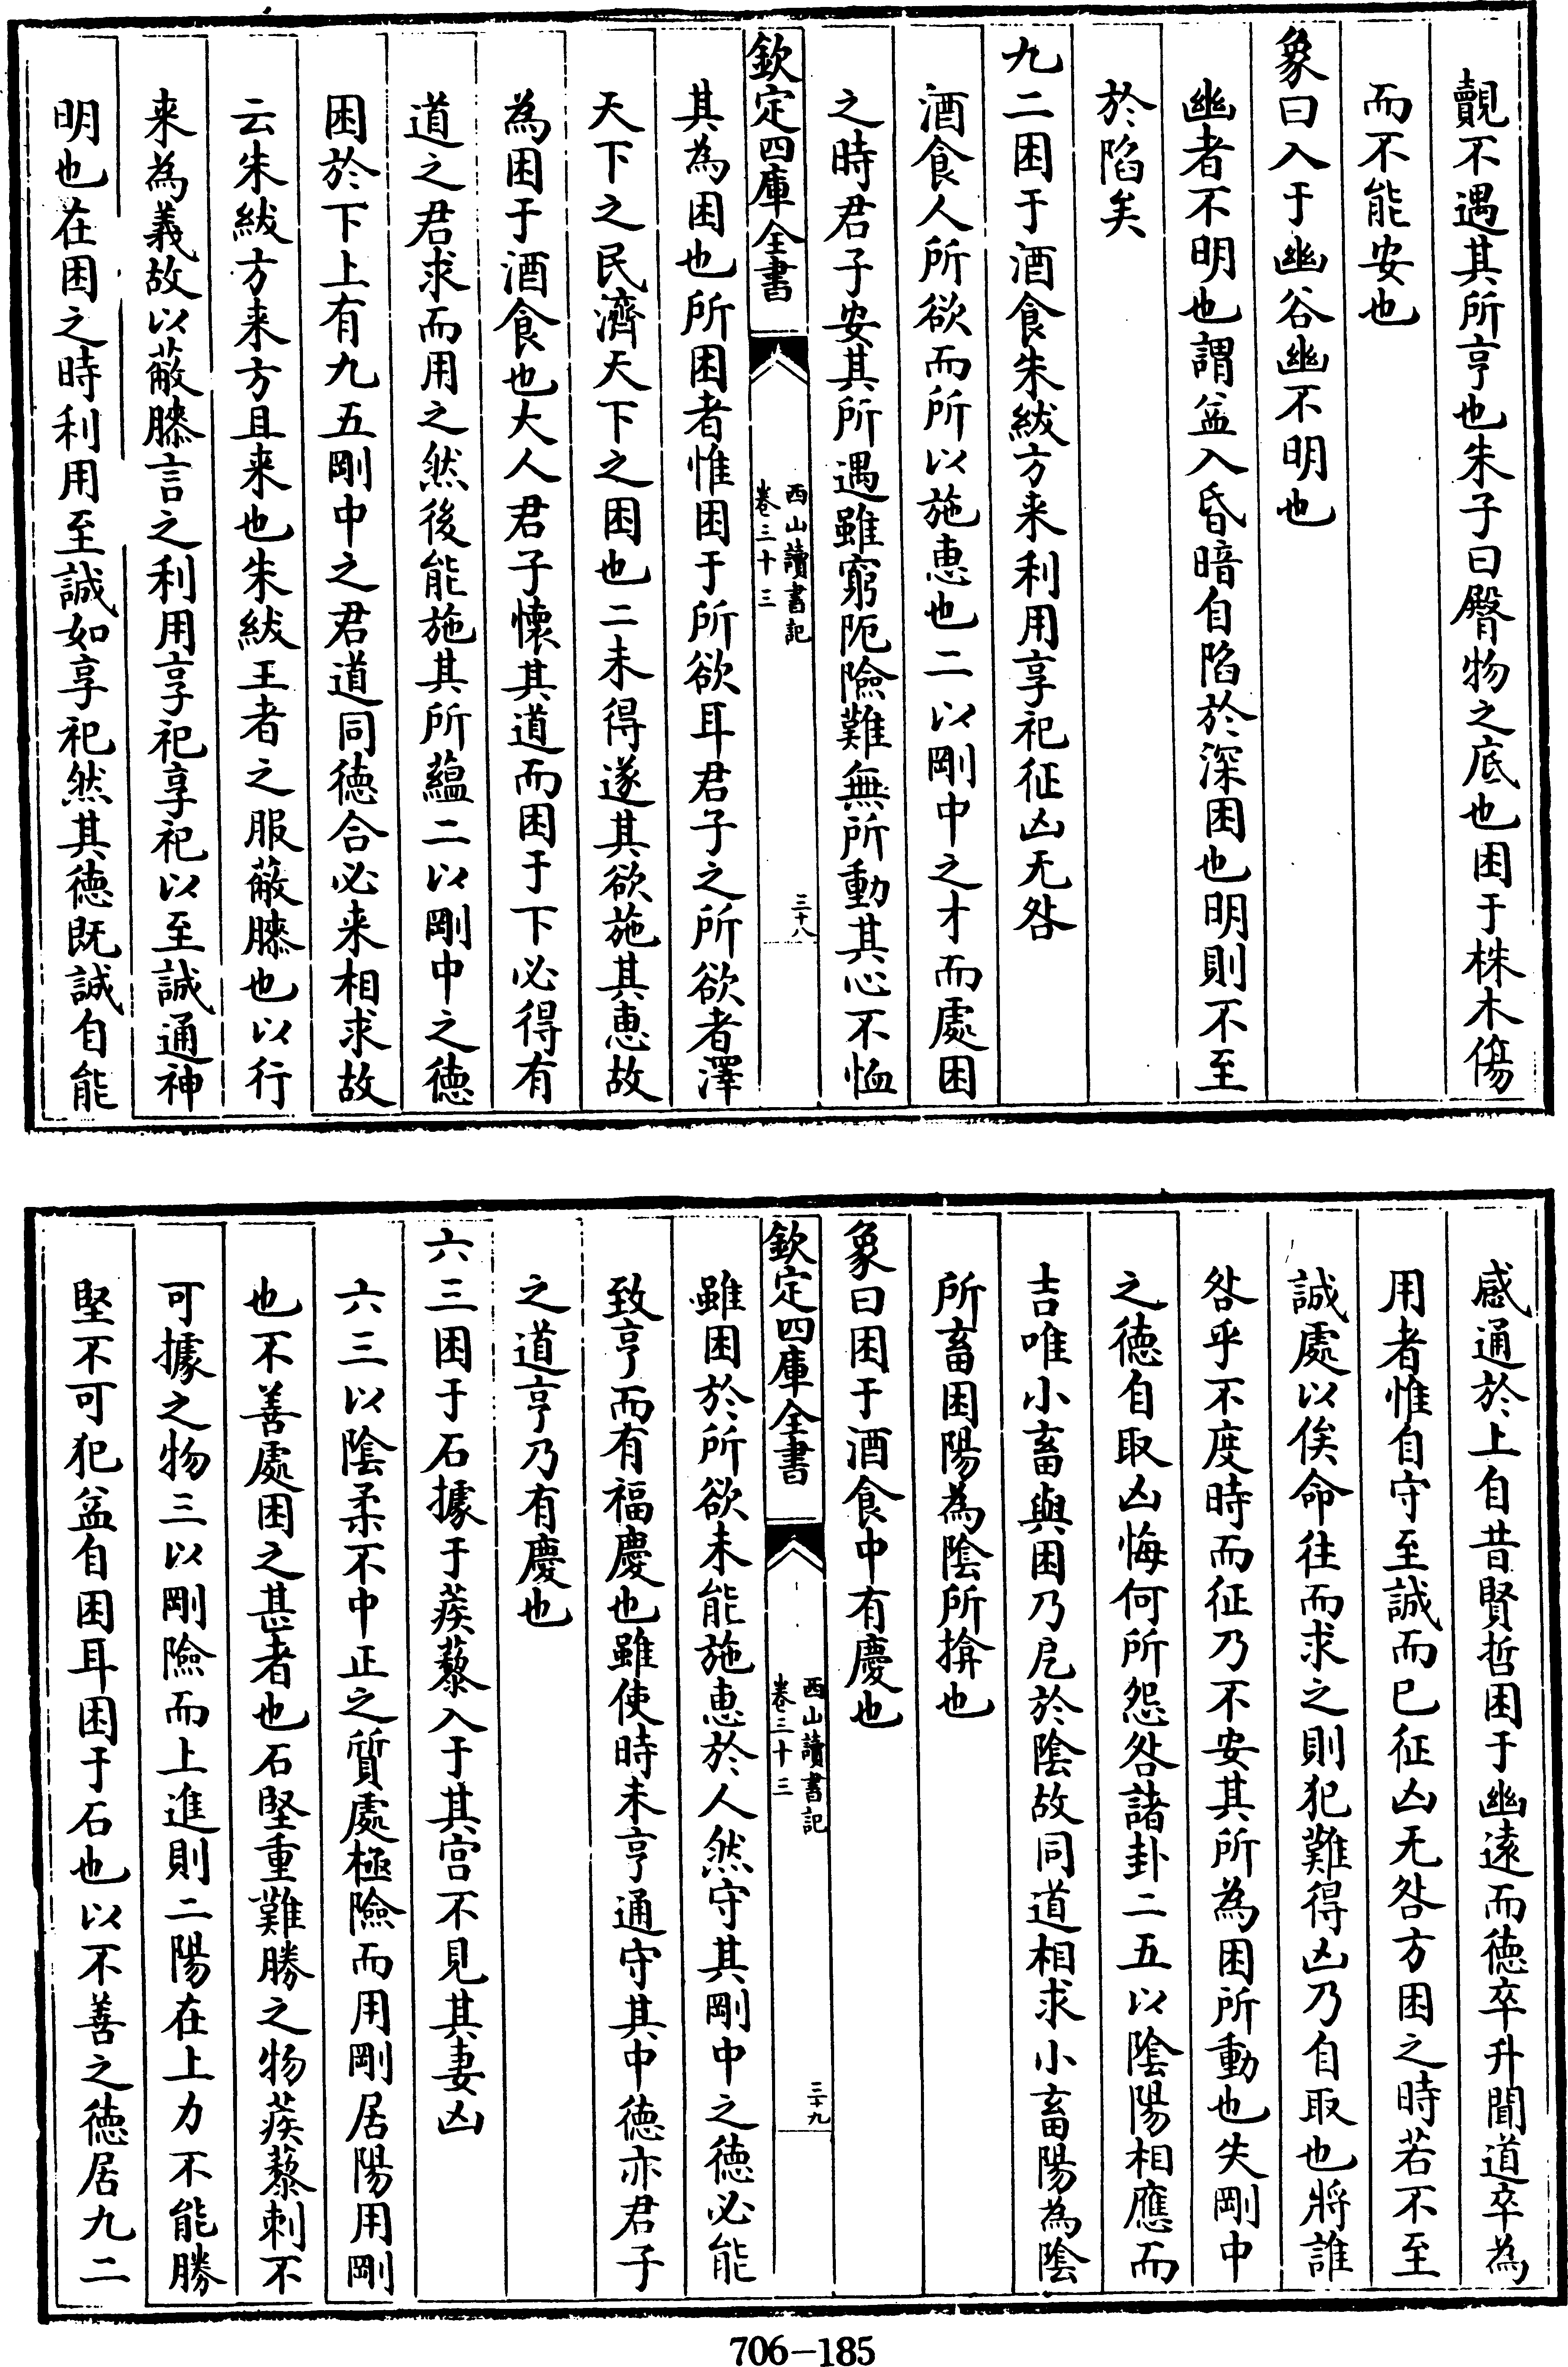 覿不遇其所亨也朱子曰臀物之底也困于株木傷
而不能安也
象曰入于幽谷幽不明也
幽者不明也謂益入昏暗自陷於深困也明則不至
於陷矣
九二困于酒食朱紱方来利用享祀征凶无咎
酒食人所欲而所以施惠也二以剛中之才而處困
之時君子安其所遇雖窮阨險難無所動其心不恤
欽定四庫全書
西山讀書記
卷三十三
三十八
其為困也所困者惟困于所欲耳君子之所欲者澤
天下之民濟天下之困也二未得遂其欲施其惠故
為困于酒食也大人君子懷其道而困于下必得有
道之君求而用之然後能施其所蘊二以剛中之德
困於下上有九五剛中之君道同德合必来相求故
云朱紱方来方且来也朱紱王者之服蔽膝也以行
来為義故以蔽膝言之利用享祀享祀以至誠通神
明也在困之時利用至誠如享祀然其德既誠自能
感通於上自昔賢哲困于幽遠而德卒升聞道卒為
用者惟自守至誠而已征凶无咎方困之時若不至
誠處以俟命往而求之則犯難得凶乃自取也將誰
咎乎不度時而征乃不安其所為困所動也失剛中
之德自取凶悔何所怨咎諸卦二五以陰陽相應而
吉唯小畜與困乃戹於陰故同道相求小畜陽為陰
所畜困陽為陰所揜也
象曰困于酒食中有慶也
欽定四庫全書
西山讀書記
卷三十三
三十九
雖困於所欲未能施惠於人然守其剛中之德必能
致亨而有福慶也雖使時未亨通守其中德亦君子
之道亨乃有慶也
六三困于石據于蒺藜入于其宫不見其妻凶
六三以陰柔不中正之質處極險而用剛居陽用剛
也不善處困之甚者也石堅重難勝之物蒺藜刺不
可據之物三以剛險而上進則二陽在上力不能勝
堅不可犯益自困耳困于石也以不善之德居九二
706-185